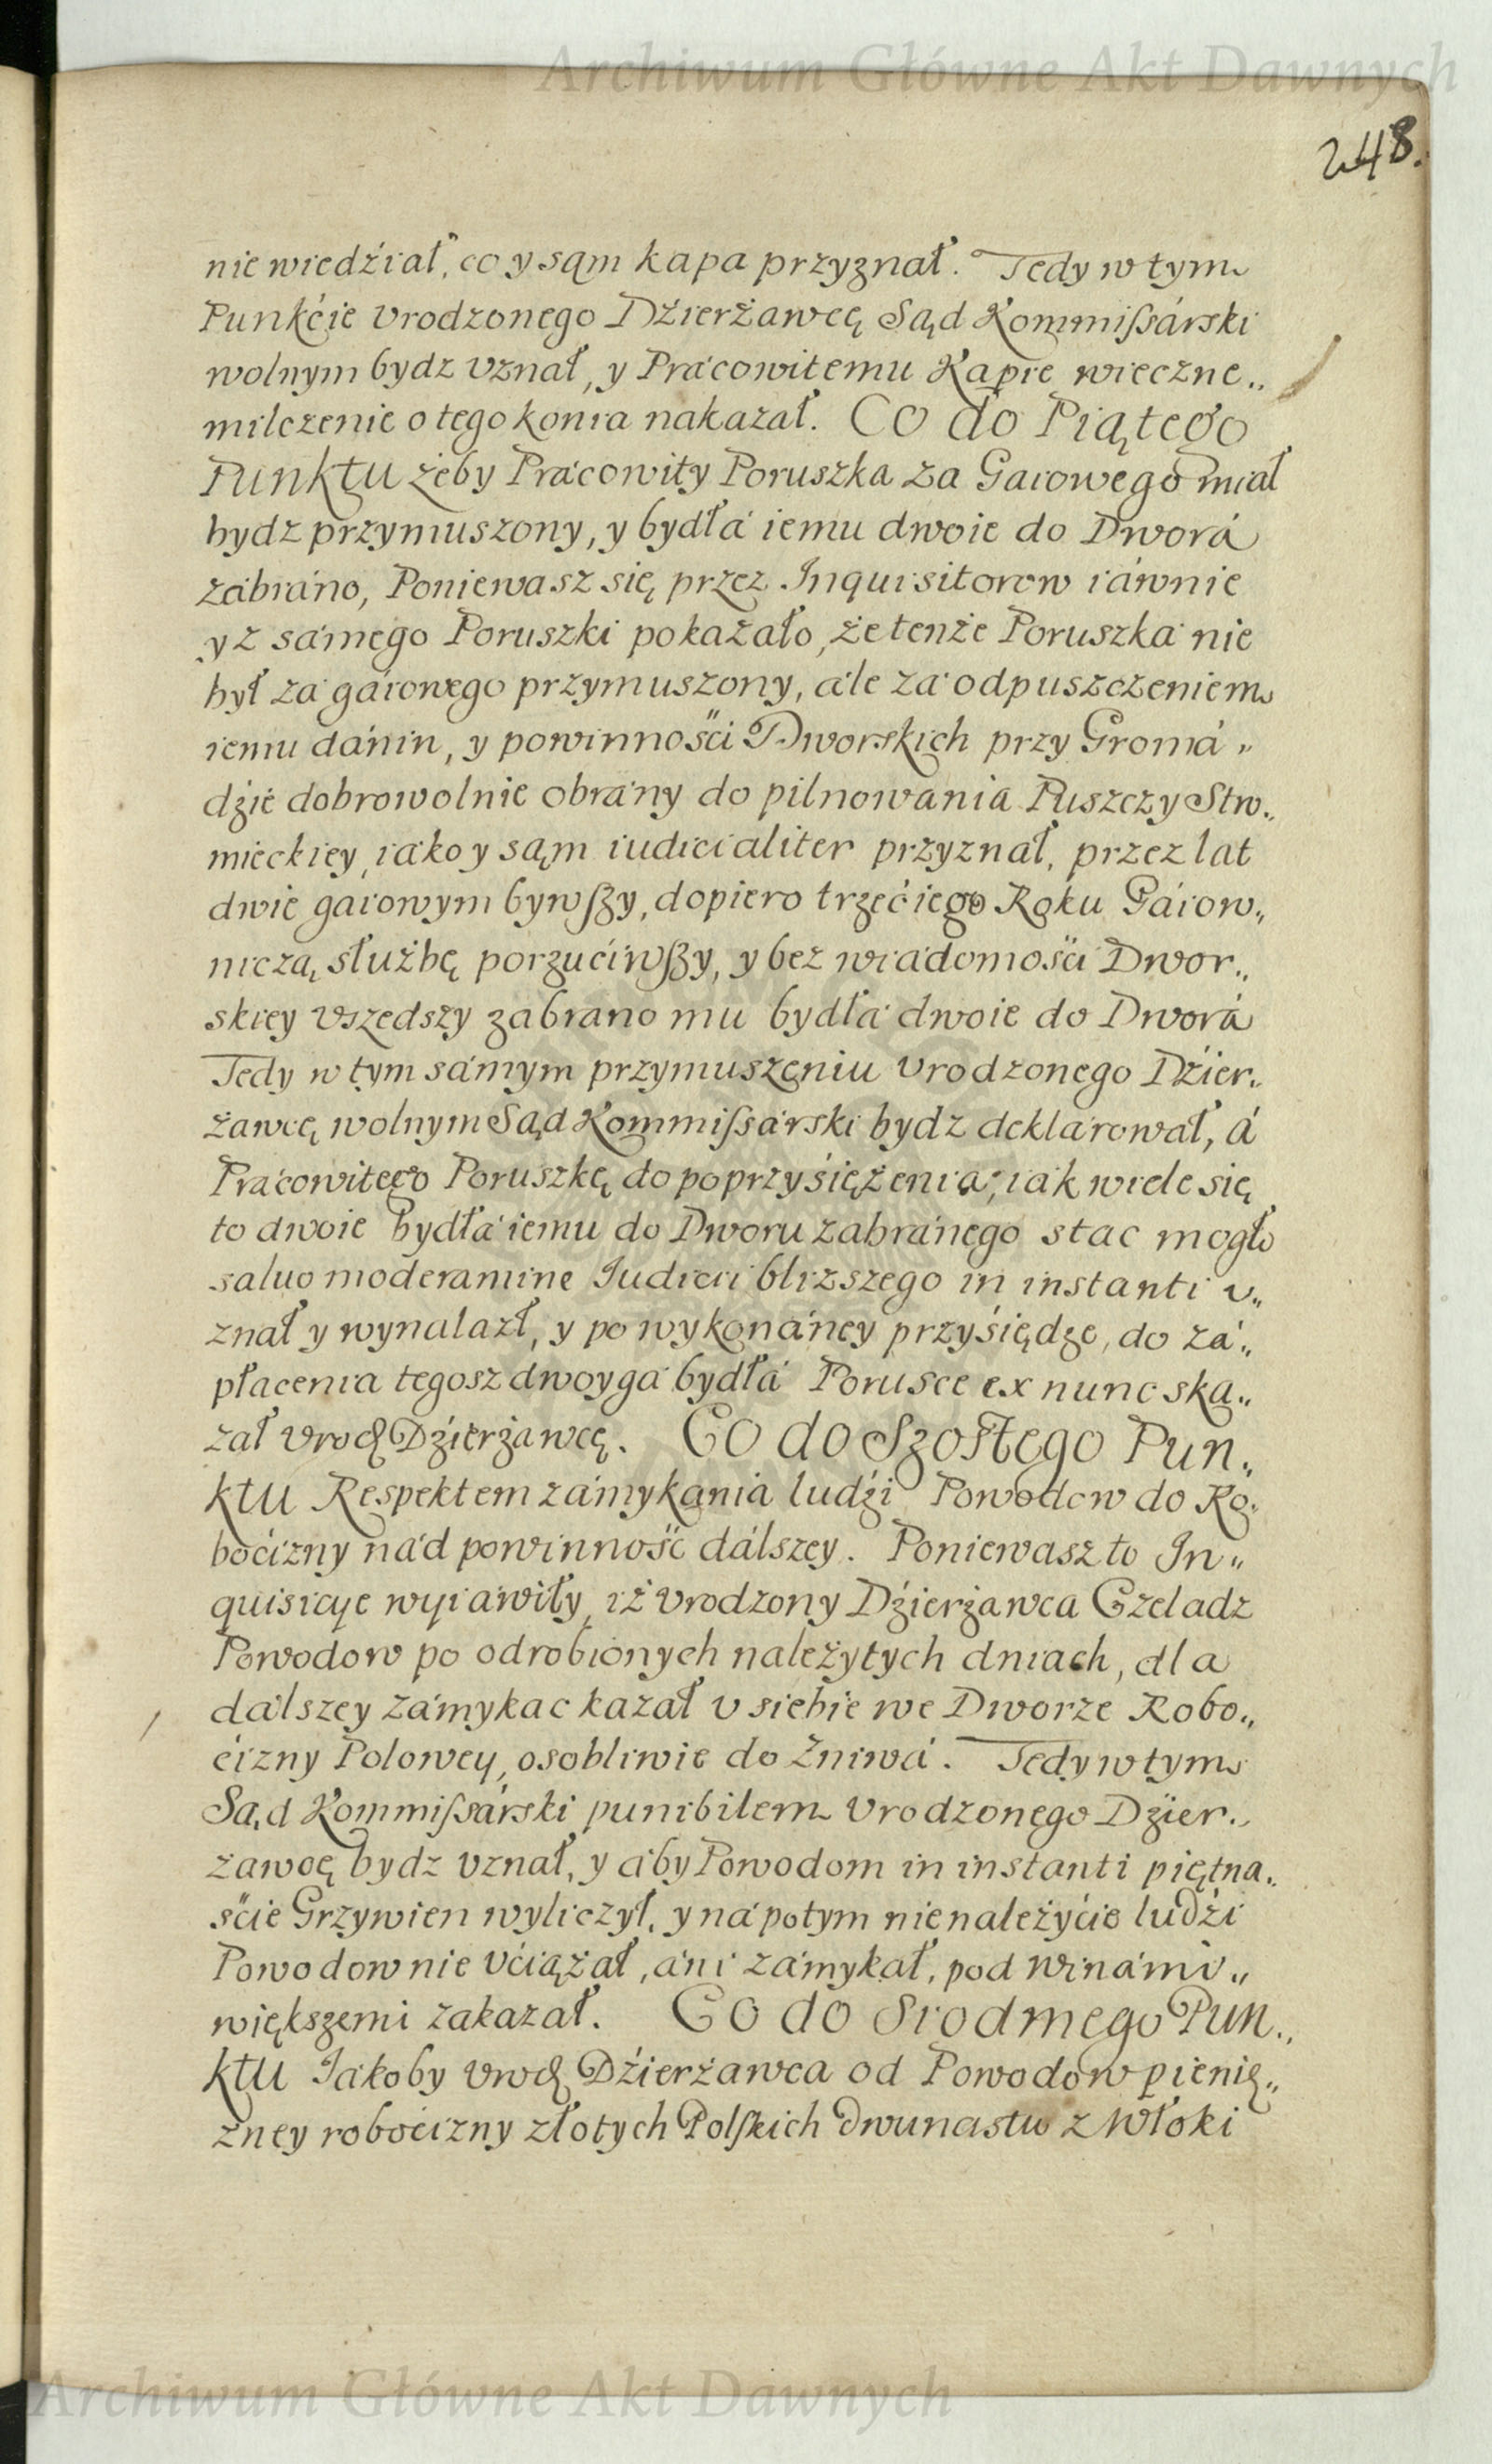 Archiwum Główne Akt Dawnych
248.
nie wiedźiał, co y sąm kapa przyznał. Tedy w tym
Punkćie Vrodzonego Dźierżawcę Sąd Kommissárski
wolnym bydz vznał, y Prácowitemu Kapie wieczne„
milczenie o tego konia nakazał. Co do Piątego
Punktu żeby Prácowity Poruszka za Gaiowego miał
bydz przymuszony, y bydłá iemu dwoie do Dworá
zábráno, Poniewasz się przez Inquisitorow iáwnie
y z sámego Poruszki pokazało, że tenże Poruszká nie
był zá gáiowego przymuszony, ále zá odpuszczeniem
iemu dánin, y powinnośći Dworskich przy Gromá„
dźie dobrowolnie obrány do pilnowania Puszczy Stro„
mieckiey, iáko y sąm iudicialiter przyznał, przez lat
dwie gaiowym bywszy, dopiero trzećiego Roku Gáiow„
niczą służbę porzućiwszy, y bez wiádomośći Dwor„
skiey vszedszy zabrano mu bydłá dwoie do Dworá
Tedy w tym sámym przymuszeniu Vrodzonego Dźier„
żawcę wolnym Sąd Kommissárski bydz deklárował, á
Prácowitego Poruszkę do poprzyśiężenia, iak wiele się
to dwoie bydłá iemu do Dworu zábránego stac mogło
saluo moderamine Iudicii bliższego in instanti v„
znał y wynalazł, y po wykonáney przyśiędze, do zá„
płacenia tegosz dwoygá bydłá Porusce ex nunc ska„
zał Vrod Dźierżawcę. Co do Szostego Pun„
ktu Respektem zámykania ludźi Powodow do Ro„
boćizny nád powinność dálszey. Poniewasz to In„
quisicye wyiáwiły, iż Vrodzony Dźierżawca Czeladz
Powodow po odrobionych należytych dniach, dla
dálszey zámykac kazał v siebie we Dworze Robo„
ćizny Polowey, osobliwie do Żniwá. Tedy w tym
Sąd Kommissárski punibilem Vrodzonego Dźier„
żawcę bydz vznał, y áby Powodom in instanti piętna„
śćie Grzywien wyliczył, y ná potym nienależyćie ludźi
Powodow nie vćiążał, áni zámykał, pod winámi„
większemi zakazał. Co do Siodmego Pun„
ktu Iákoby Vrod Dźierżawca od Powodow pienię„
żney roboćizny złotych Polskich dwunastu z Włoki
Archiwum Główne Akt Dawnych